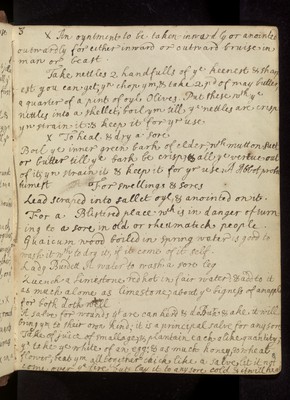 5
x An oyntment to be taken inwardly or anointed
outwardly for either inward or outward bruise in
man or beast.
Take nettles 2 handfulls of ye keenest & sharp
est you can get, yn chop ym, & take 2 pd of may butter
a quarter of a pint of oyle Olives. Put these wth ye
nettles into a skellet; boil ym till ye nettles are crisp
yn strain it & keep it for yr use
x To heal & dry a sore
Boil ye inner green bark of elder, wth mutton suet
or butter till ye bark be crisp, & all ye vertue out
of it, yn strain it & keep it for yr use
For swellings & sores
Lead scraped into sallet oyl, & anointed on it.
For a Blistered place wch is in danger of turn
ing to a sore in old or rheumatick people
Guaicum wood boiled in spring water is good to
wash it wth, to dry it, if it come of its self.
Lady water to wash a sore leg
Quench a limestone red hot in fair water, & add to it
as much alome as limestone, about ye bigness of an apple
for both doth well
A salve for wounds yt are & ake, it will
bring ym to their own kind; it is a principal salve for any sore
Take of juice of smallage, & plantain, each alike quantity,
ye white of an egg, & as much honey, & wheat
flower, beat ym all together like a salve, let it not
come over ye fire, but lay it to any sore cold & it will heal